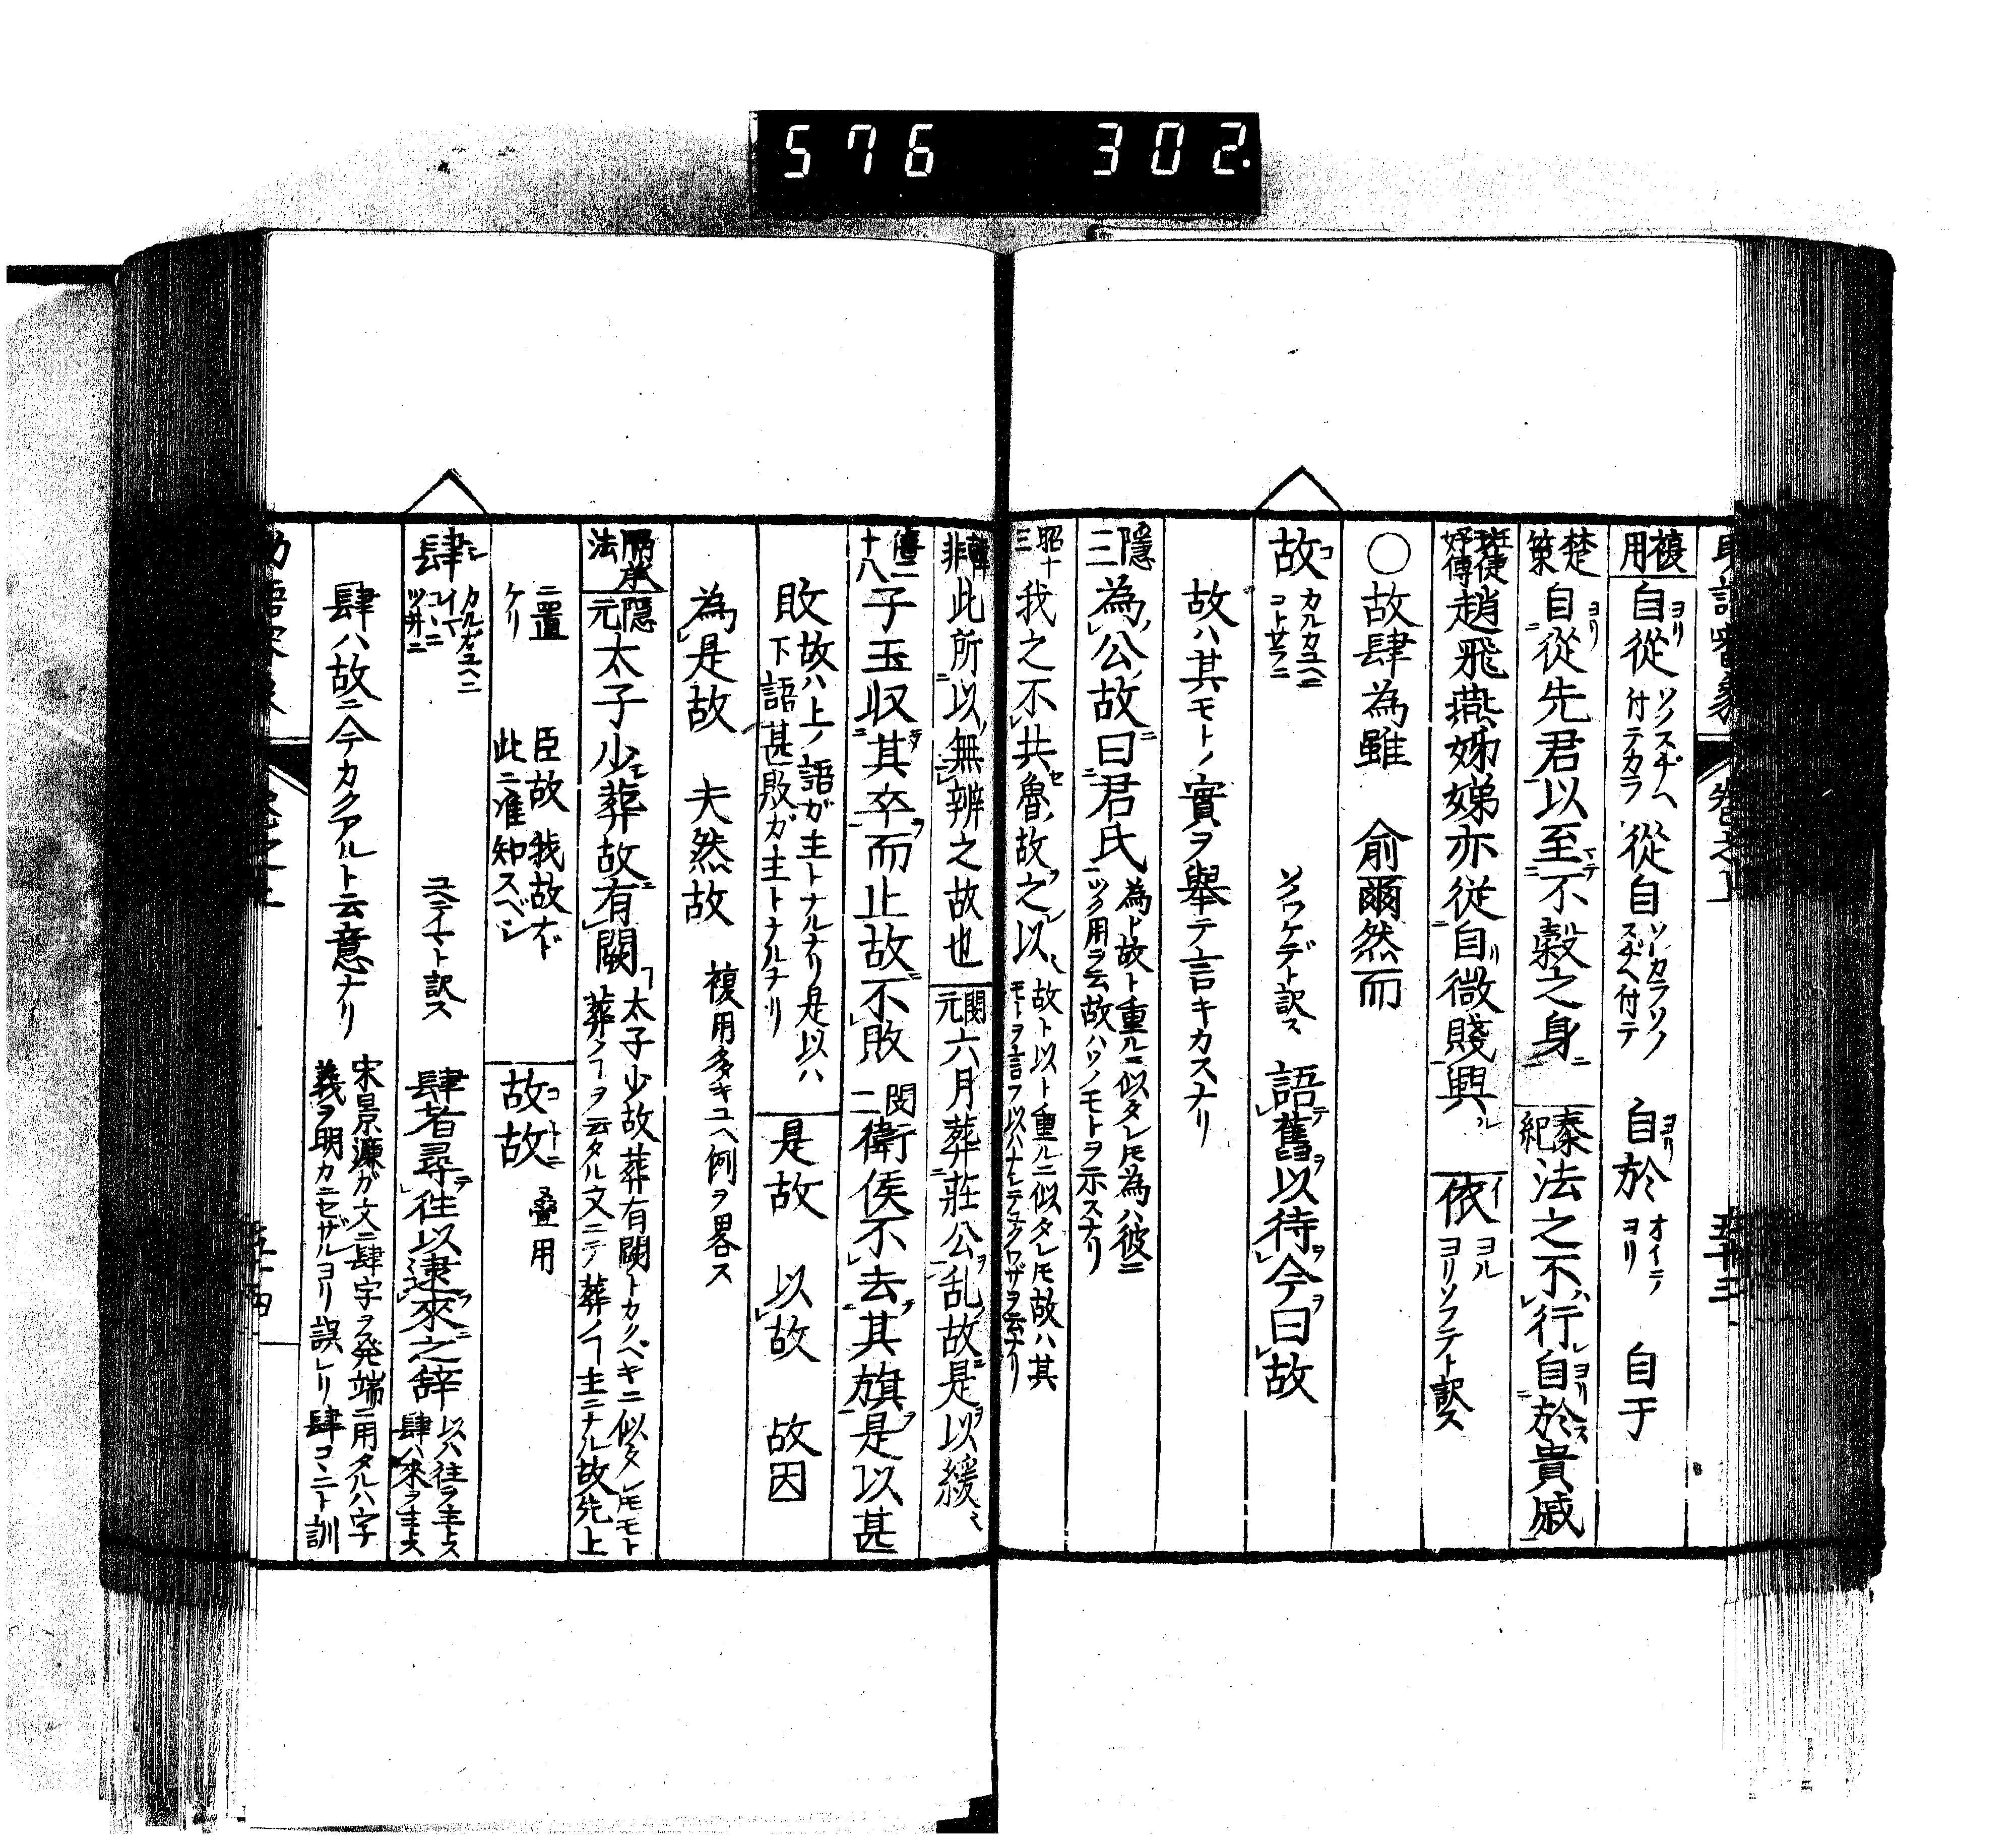 576 302.
複用 自從 ソノスヂヘ付テカラ 從自 ソレカラソノスヂヘ付テ 自於 オイテヨリ 自于
楚策 自從先君以至不穀之身 秦紀 法之不行自於貴戚
趙飛燕姊娣亦從自微賤興 依 ヨル ヨリソフテト訳ス
○故肆為雖 俞爾然而
故 カルカユヘニ コトサラニ ソノワケデト訳ス 語舊以待今曰故
故ハ其モトノ實ヲ舉テ言キカスナリ
隱三 為公故曰君氏 為ト故ト重ルニ似タレモ為ハ彼ニツク用ヲ云故ハソノモトヲ示スナリ
昭十三 我之不共魯故之以 故ト以ト重ルニ似タレモ故ハ其モトヲ言フ以ハナシテユクワザヲ云ナリ
韓非 此所以無辨之故也 閔元 六月葬莊公乱故是以緩
僖二十八 子玉収其卒而止故不敗 閔二 衛侯不去其旗是以甚
敗 故ハ上ノ語ガ主トナルナリ是以ハ下語甚敗ガ主トナルナリ 是故 以故 故因
為是故 夫然故 複用多キユヘ例ヲ畧ス
法 隱元 太子少葬故有闕 太子少故葬有闕トカクベキニ似タレモモト葬ノヿヲ云タル文ニテ葬ノヿ主ニナル故先上
ニ置ケリ 臣故我故ナド此ニ准知スベシ 故故 叠用
肆 カルガユヘニ コヽニ ツ井ニ コステイマト訳ス 肆者尋往以逮來之辞 以ハ往ヲ主トス肆ハ來ヲ主トス
肆ハ故ニ今カクアルト云意ナリ 宋景濂ガ文ニ肆字ヲ発端ニ用タルハ字義ヲ明カニセザルヨリ誤レリ肆コヽニト訓